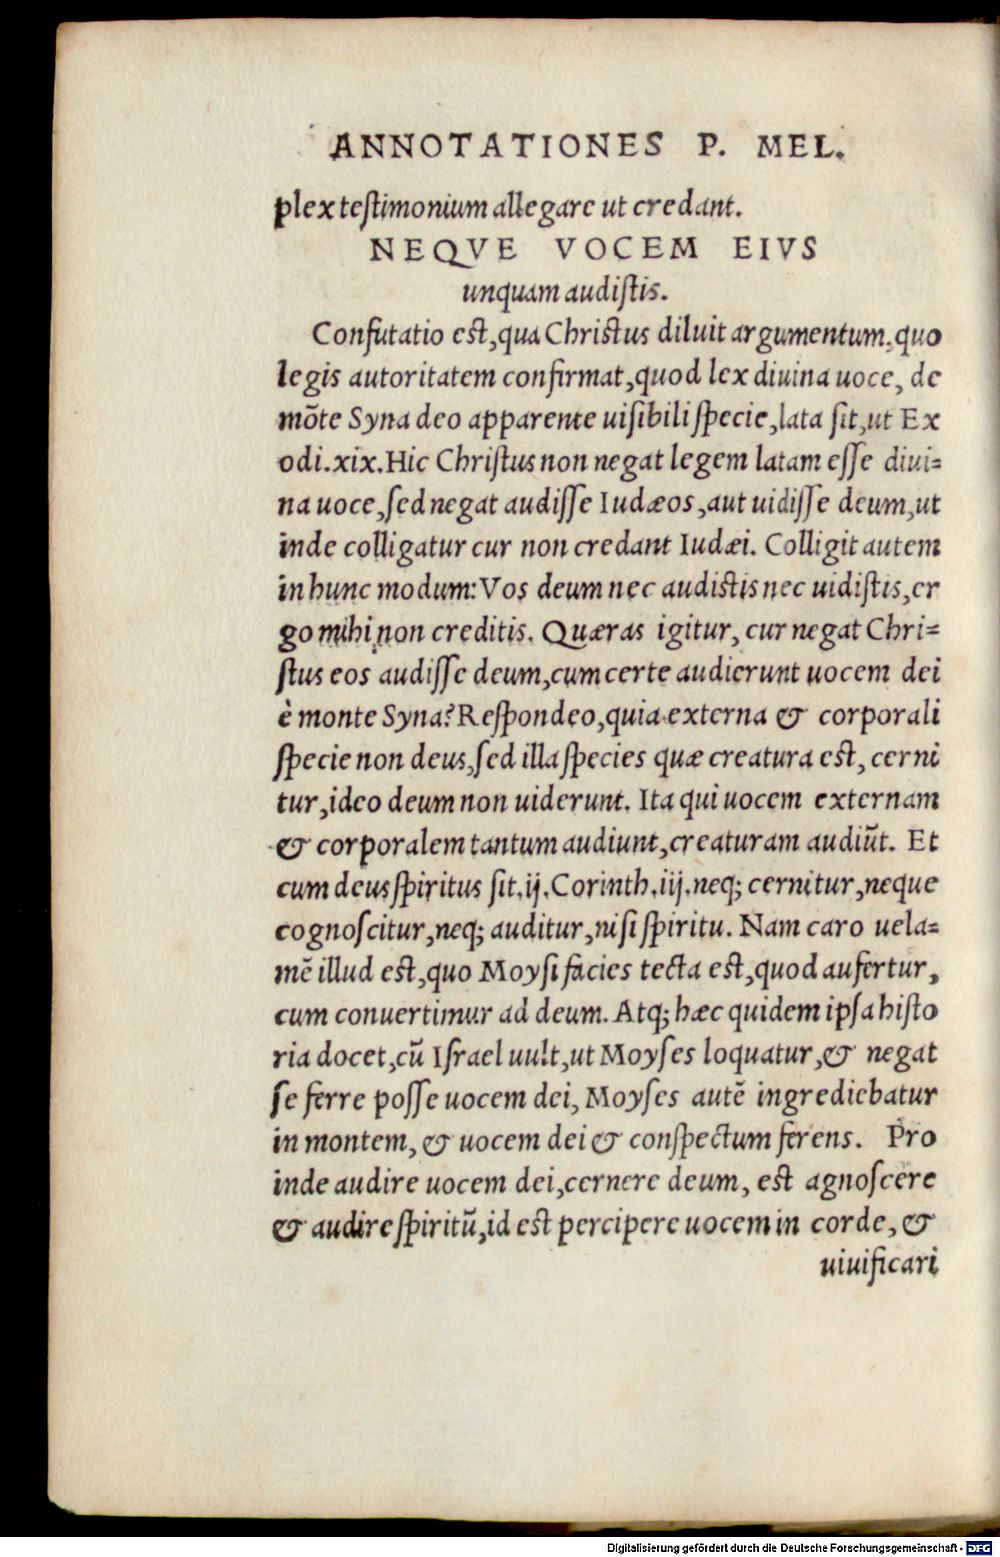 ANNOTATIONES P. MEL.
plex testimonium allegare ut credant.
NEQVE VOCEM EIVS
unquam audistis.
Confutatio est, qua Christus diluit argumentum, quo
legis autoritatem confirmat, quod lex diuina uoce, de
mõte Syna deo apparente uisibili specie, lata sit, ut Ex
odi.xix. Hic Christus non negat legem latam esse diui=
na uoce, sed negat audisse Iudæos, aut uidisse deum, ut
inde colligatur cur non credant Iudæi. Colligit autem
in hunc modum: Vos deum nec audistis nec uidistis, er
go mihi non creditis. Quæras igitur, cur negat Chri=
stus eos audisse deum, cum certe audierunt uocem dei
è monte Syna? Respondeo, quia externa & corporali
specie non deus, sed illa species quæ creatura est, cerni
tur, ideo deum non uiderunt. Ita qui uocem externam
& corporalem tantum audiunt, creaturam audiũt. Et
cum deus spiritus sit.ij.Corinth.iij.neq; cernitur, neque
cognoscitur, neq; auditur, nisi spiritu. Nam caro uela=
mẽ illud est, quo Moysi facies tecta est, quod aufertur,
cum conuertimur ad deum. Atq; hæc quidem ipsa histo
ria docet, cũ Israel uult, ut Moyses loquatur, & negat
se ferre posse uocem dei, Moyses autẽ ingrediebatur
in montem, & uocem dei & conspectum ferens. Pro
inde audire uocem dei, cernere deum, est agnoscere
& audire spiritũ, id est percipere uocem in corde, &
uiuificari
Digitalisierung gefördert durch die Deutsche Forschungsgemeinschaft - DFG